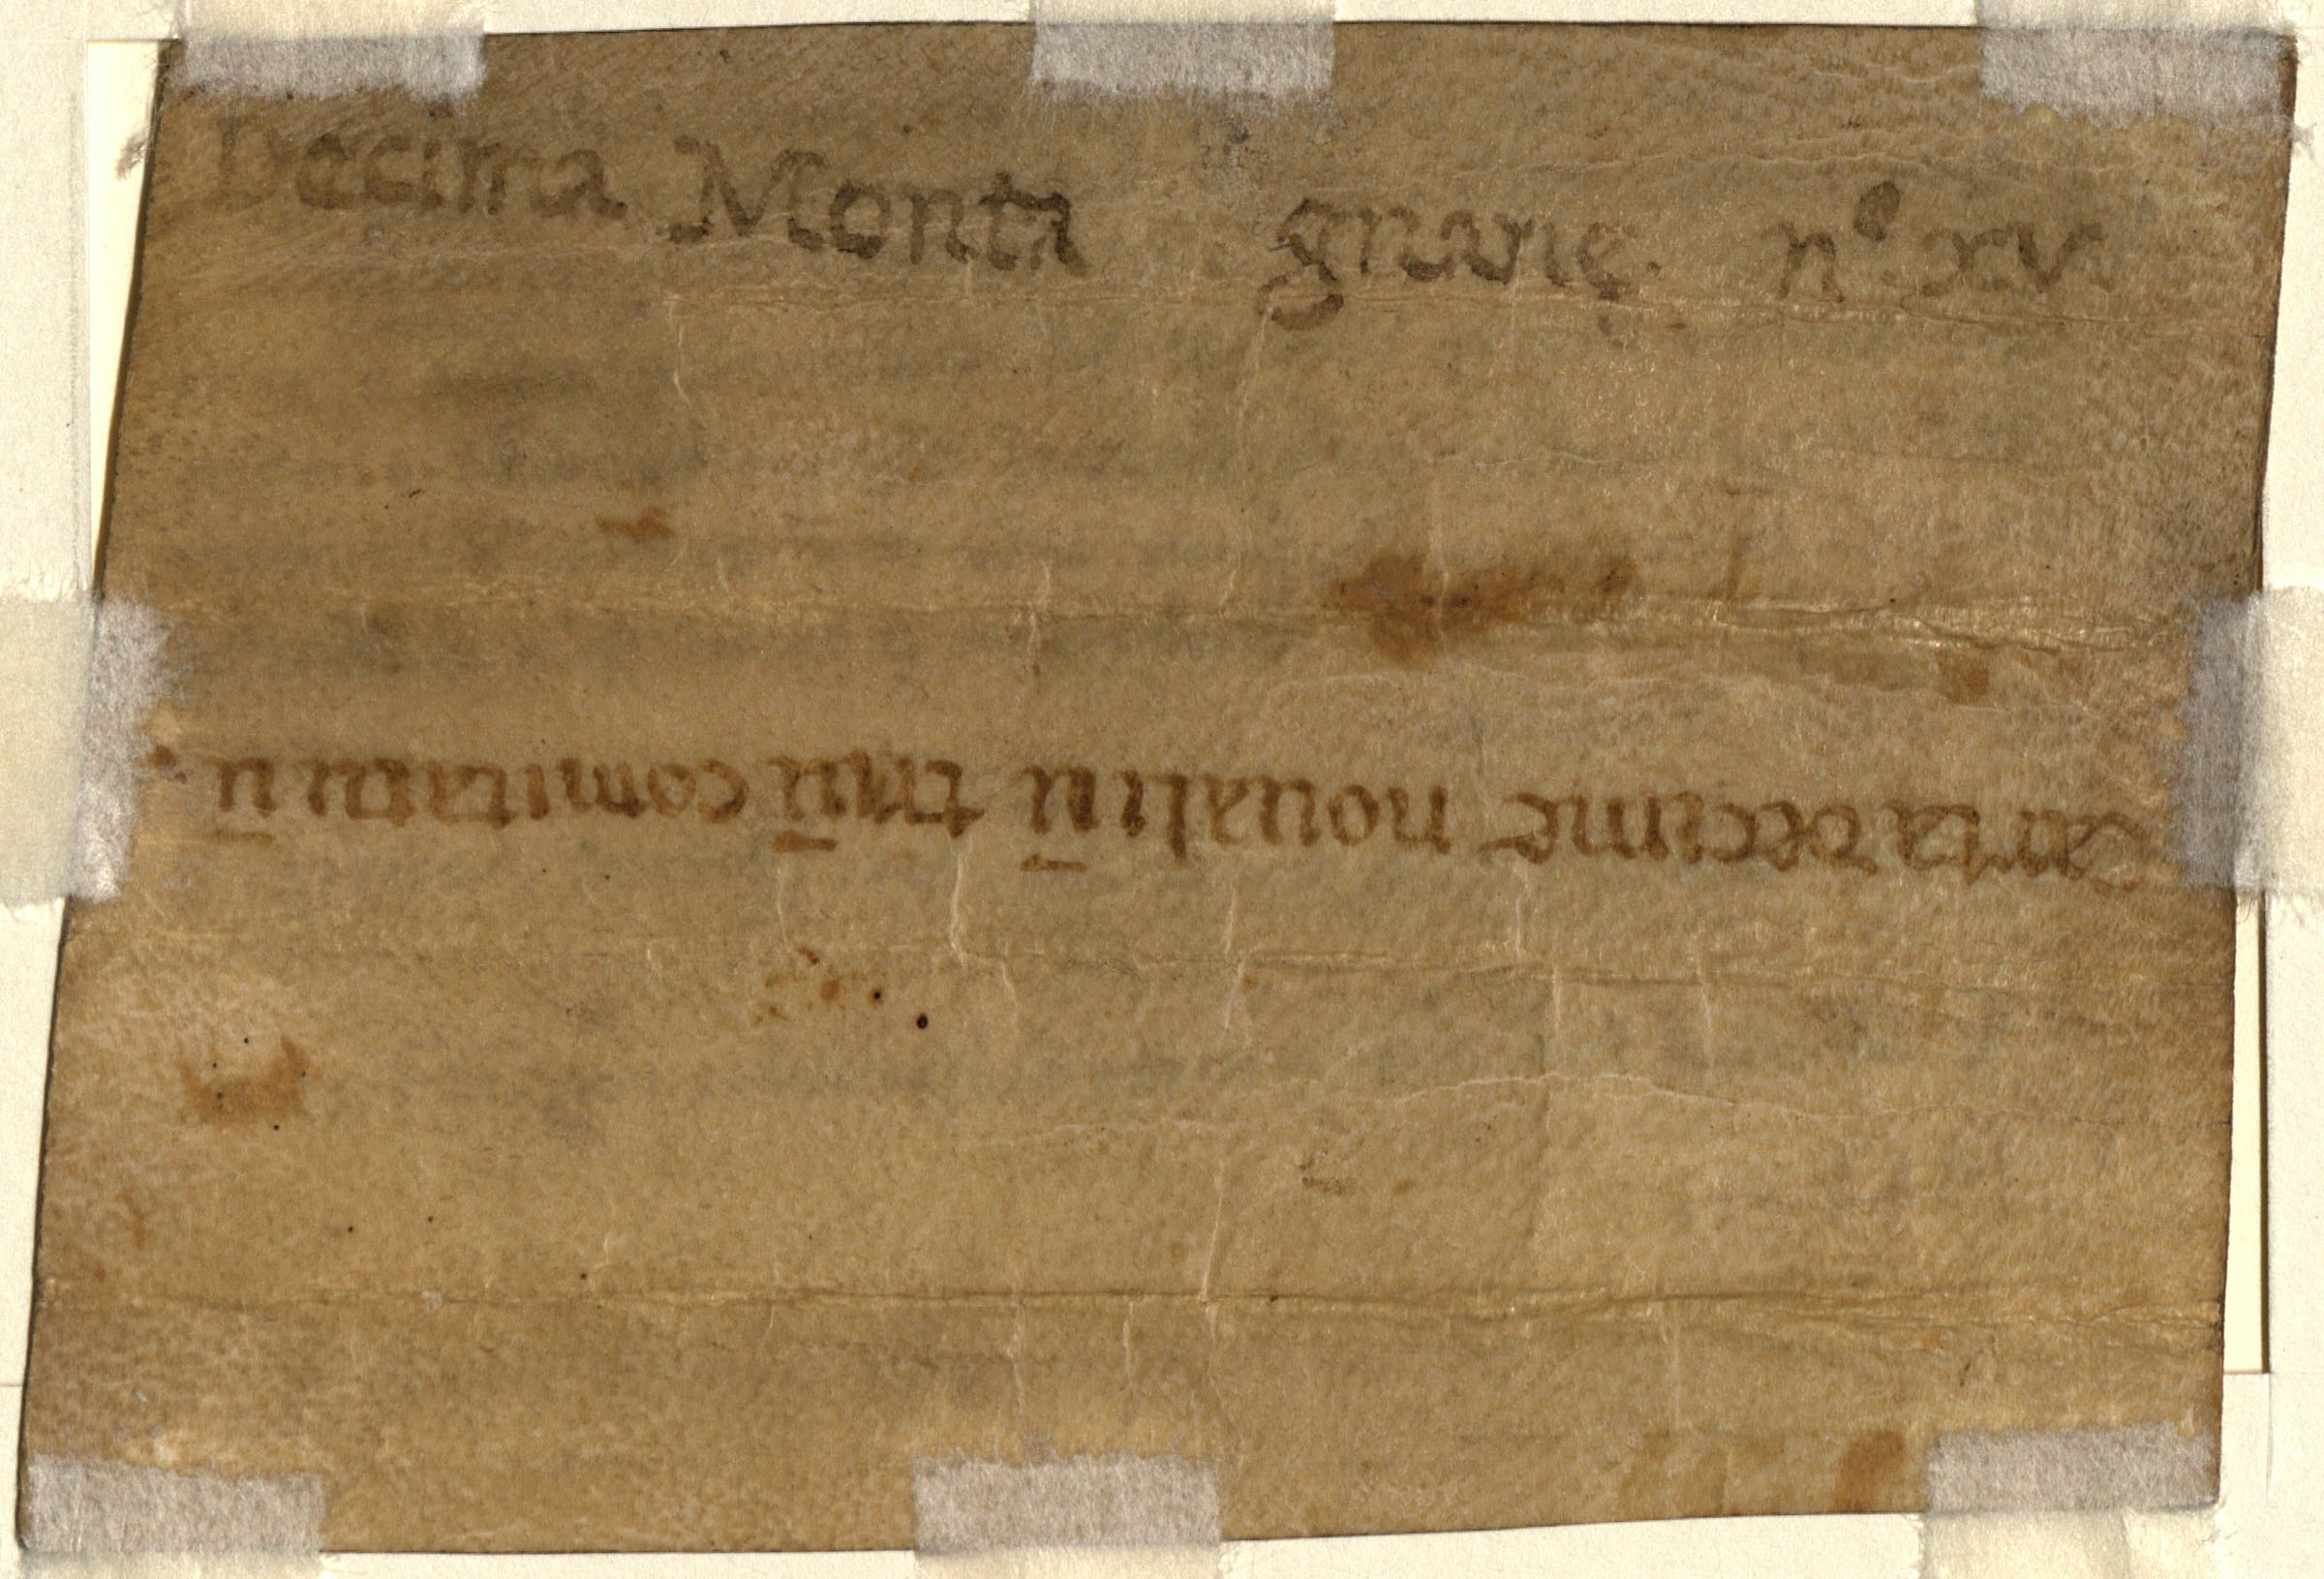 Decima Monta gnanę. nº. xv.
Carta decime noualiū triū comitatuū.